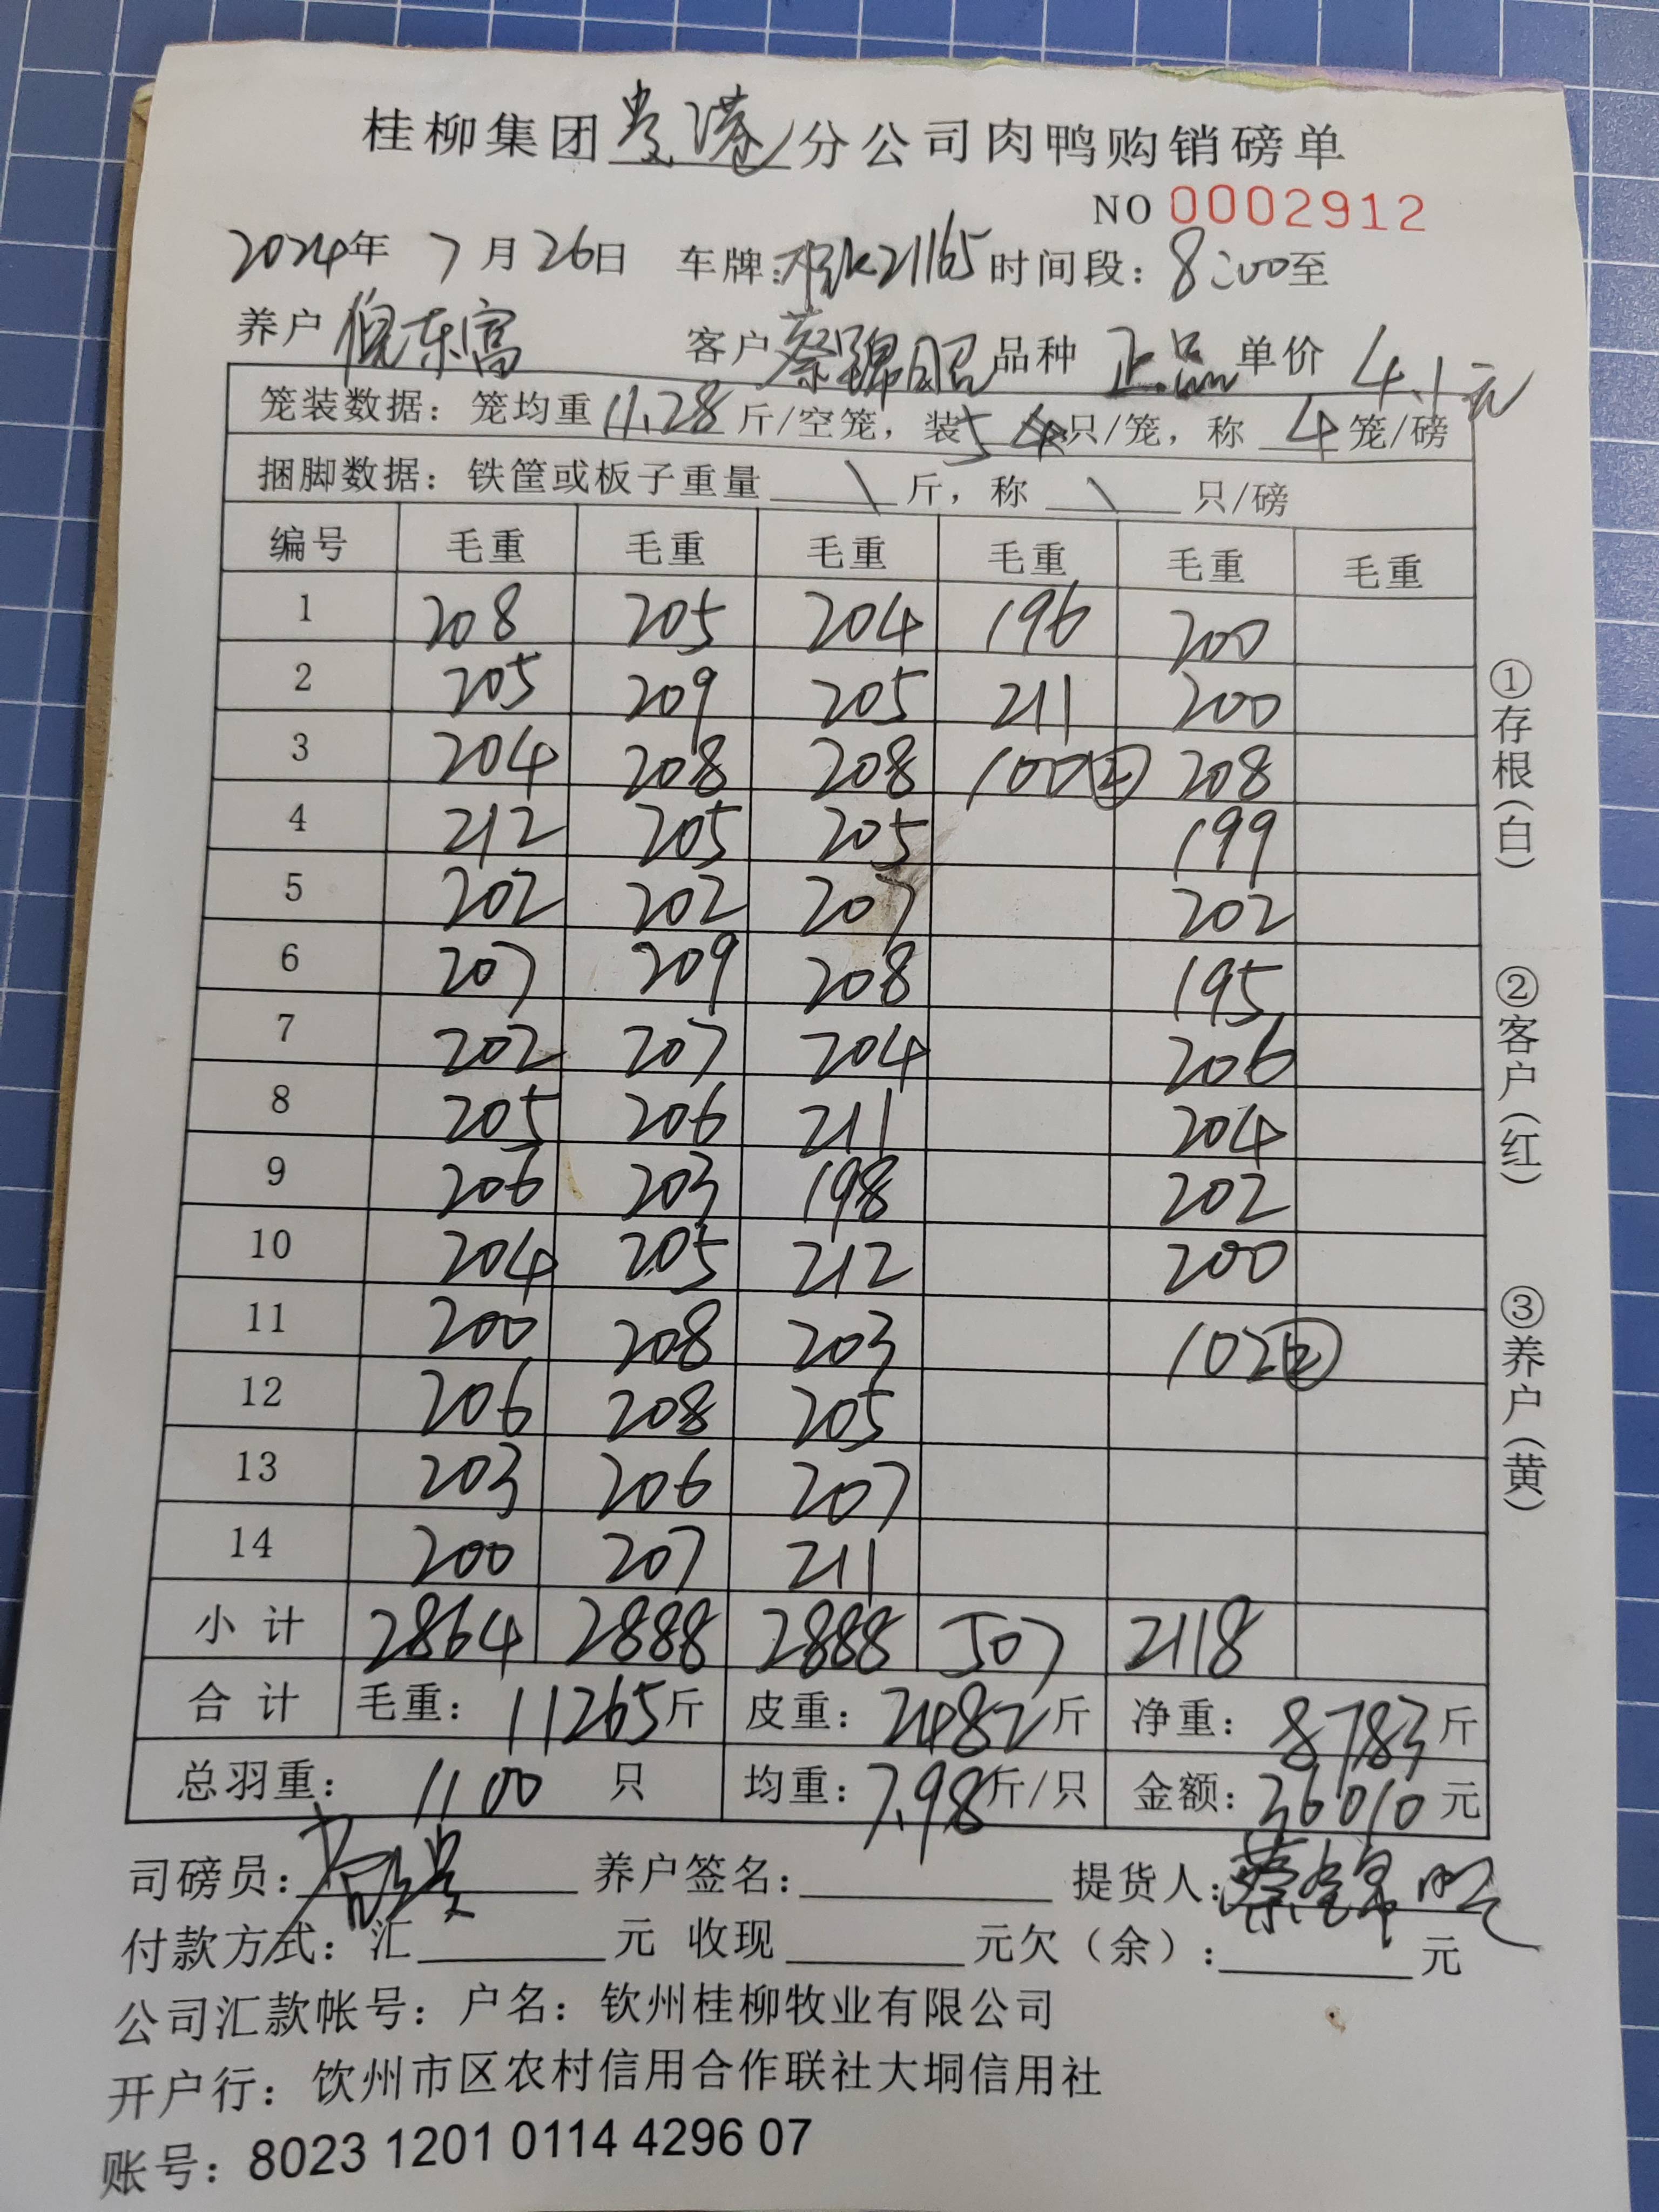 桂柳集团贵港分公司肉鸭购销磅单
NO 0002912
2024年 7月26日 车牌:K21165 时间段:8:00至
养户 倪东富 客户 蔡锦昭 品种 正品 单价 4.1元
笼装数据:笼均重 11.28 斤/空笼,装 5 4 只/笼,称 4 笼/磅
捆脚数据:铁筐或板子重量 \ 斤,称 \ 只/磅
编号 毛重 毛重 毛重 毛重 毛重 毛重
1 208 205 204 196 200
2 205 209 205 211 200
3 204 208 208 100② 208
4 212 205 205 199
5 202 202 207 202
6 207 209 208 195
7 202 207 204 206
8 205 206 211 204
9 206 203 198 202
10 204 205 212 200
11 200 208 203 102②
12 206 208 205
13 203 206 207
14 200 207 211
小计 2864 2888 2888 507 2118
合计 毛重:11265斤 皮重:2482斤 净重:8783斤
总羽重:1100 只 均重:7.98斤/只 金额:36010元
司磅员: 养户签名: 提货人:蔡锦昭
付款方式:汇 元 收现 元欠(余): 元
公司汇款帐号:户名:钦州桂柳牧业有限公司
开户行:钦州市区农村信用合作联社大垌信用社
账号:8023 1201 0114 4296 07
①存根(白) ②客户(红) ③养户(黄)